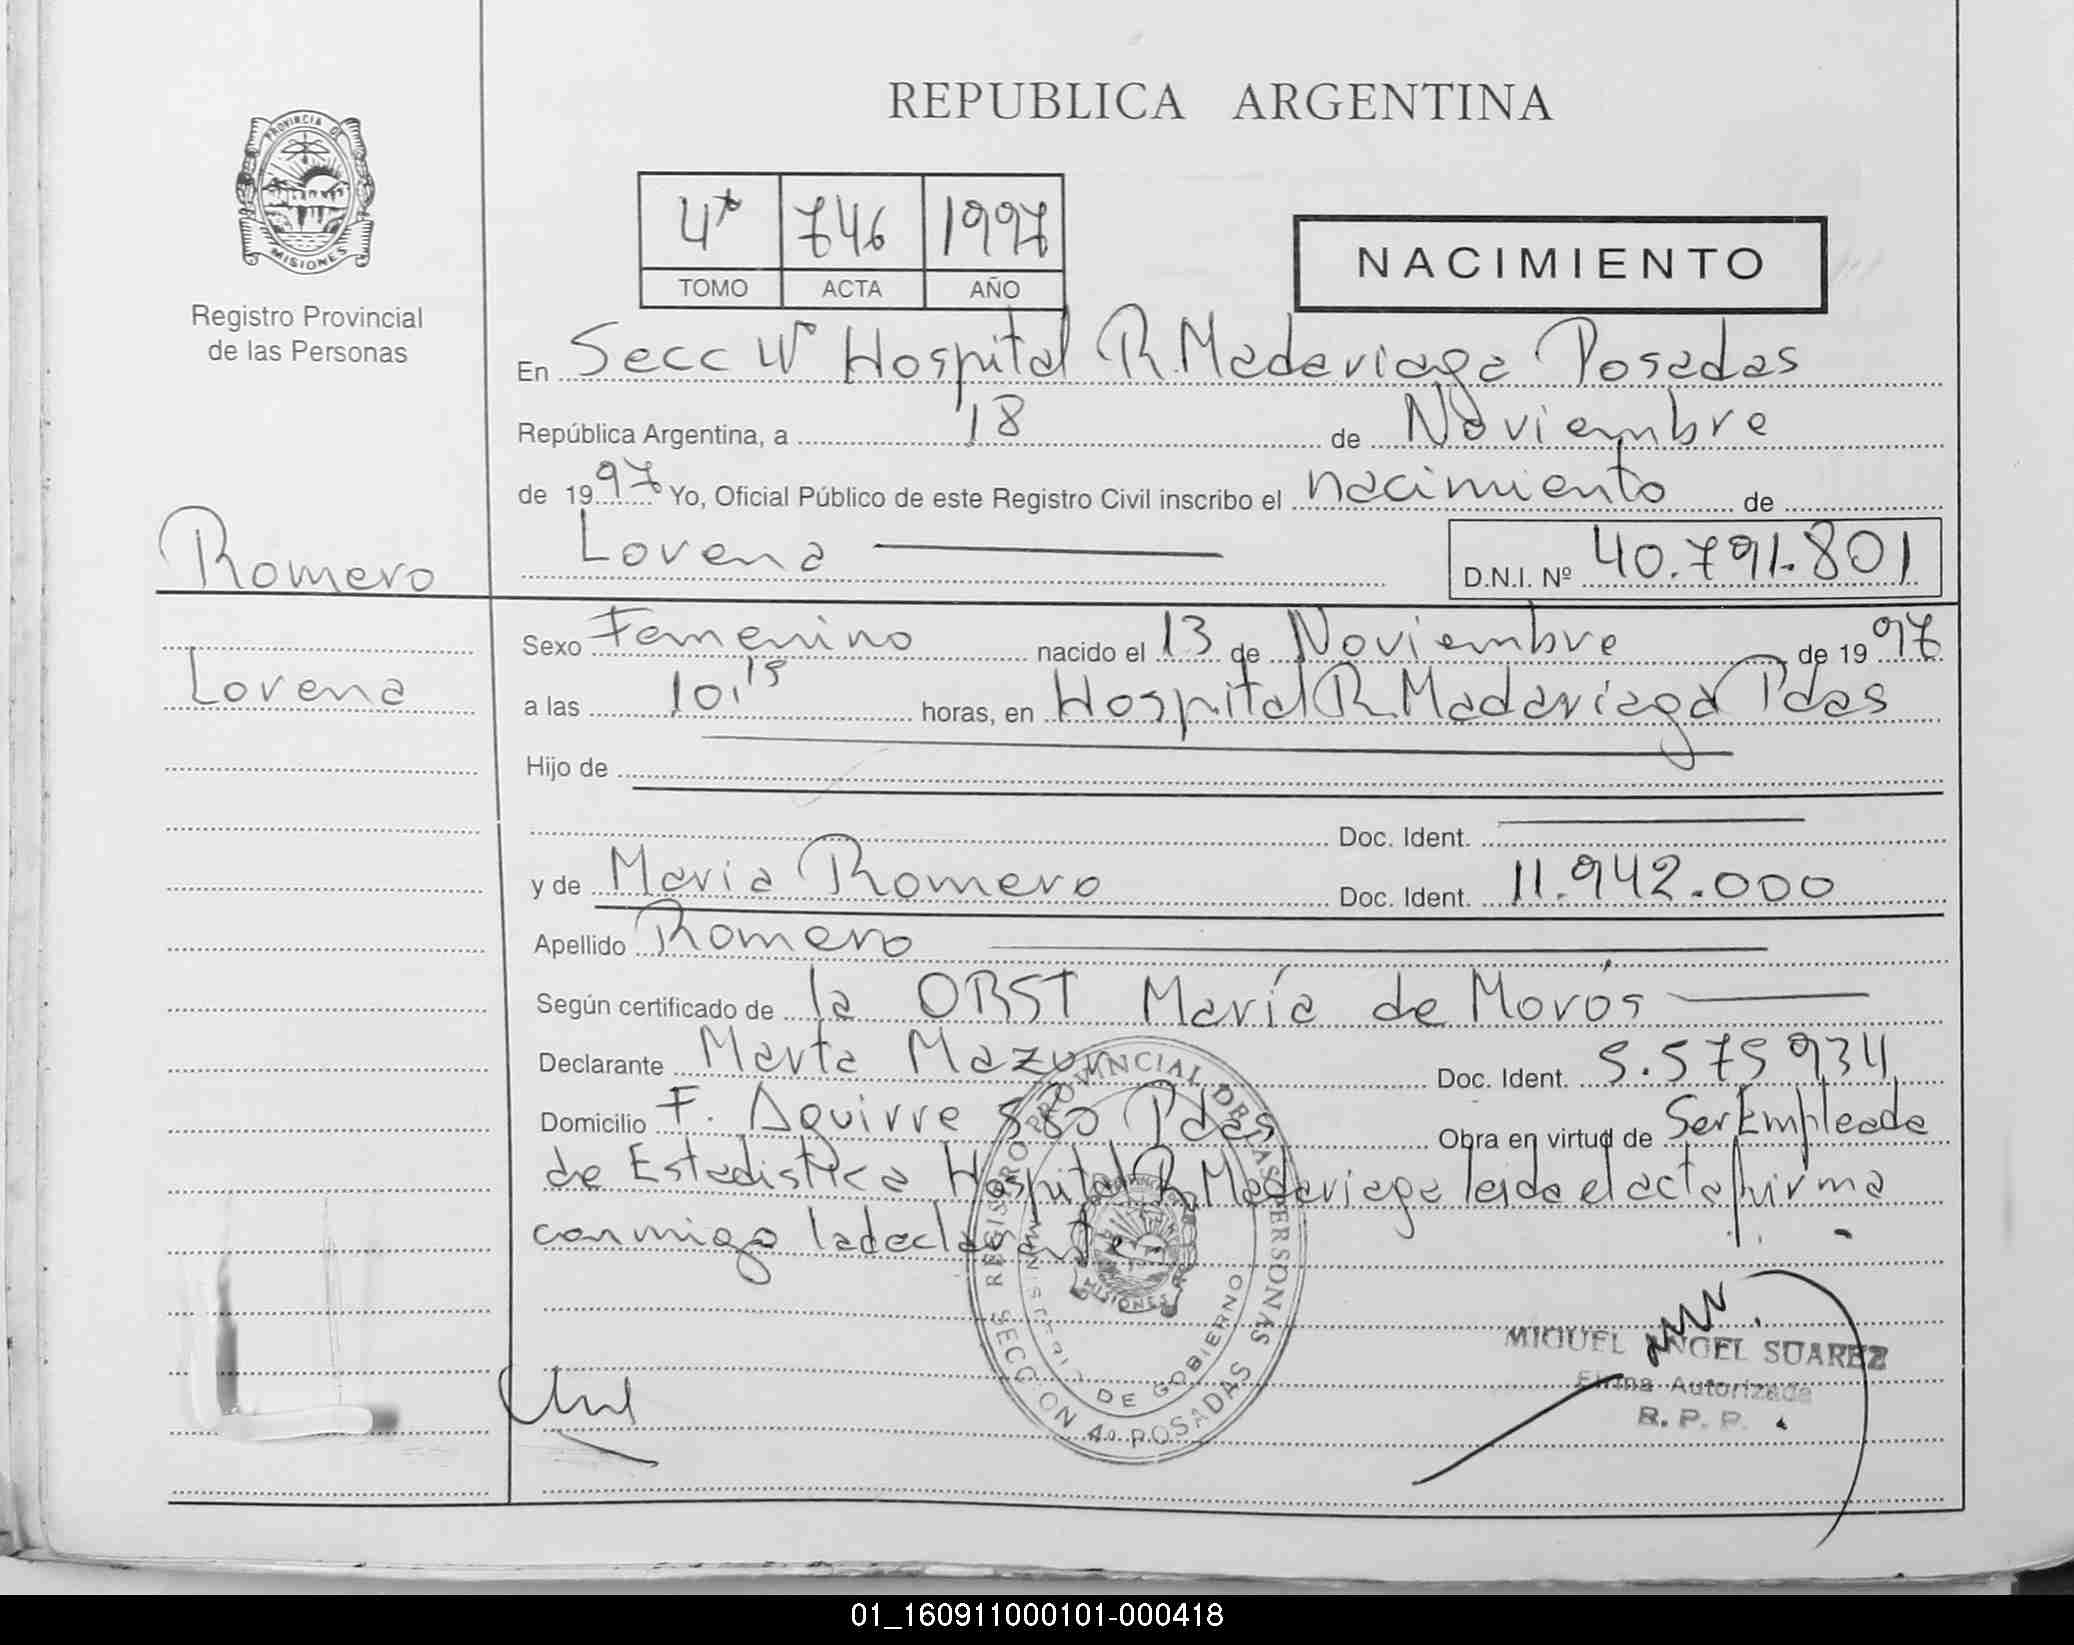 REPUBLICA ARGENTINA
PROVINCIA DE
MISIONES
Registro Provincial
de las Personas
4to 746 1997
TOMO ACTA AÑO
NACIMIENTO
En Secc 4ta Hospital R. Madariaga Posadas
República Argentina, a 18 de Noviembre
de 1997 Yo, Oficial Público de este Registro Civil inscribo el nacimiento de
Lorena D.N.I. Nº 40.791.801
Romero
Lorena
Sexo Femenino nacido el 13 de Noviembre de 1997
a las 10,15 horas, en Hospital R. Madariaga Pdas
Hijo de
Doc. Ident.
y de Maria Romero Doc. Ident. 11.942.000
Apellido Romero
Según certificado de la OBST María de Morós
Declarante Marta Mazur Doc. Ident. 5.575934
Domicilio F. Aguirre 580 Pdas Obra en virtud de Ser Empleada
de Estadistica Hospital R. Madariaga leida el acta firma
conmigo la declarante
REGISTRO PROVINCIAL DE LAS PERSONAS
MINISTERIO DE GOBIERNO
MISIONES
SECCION 4º POSADAS
MIGUEL ANGEL SUAREZ
Firma Autorizada
R. P. P.
01_160911000101-000418